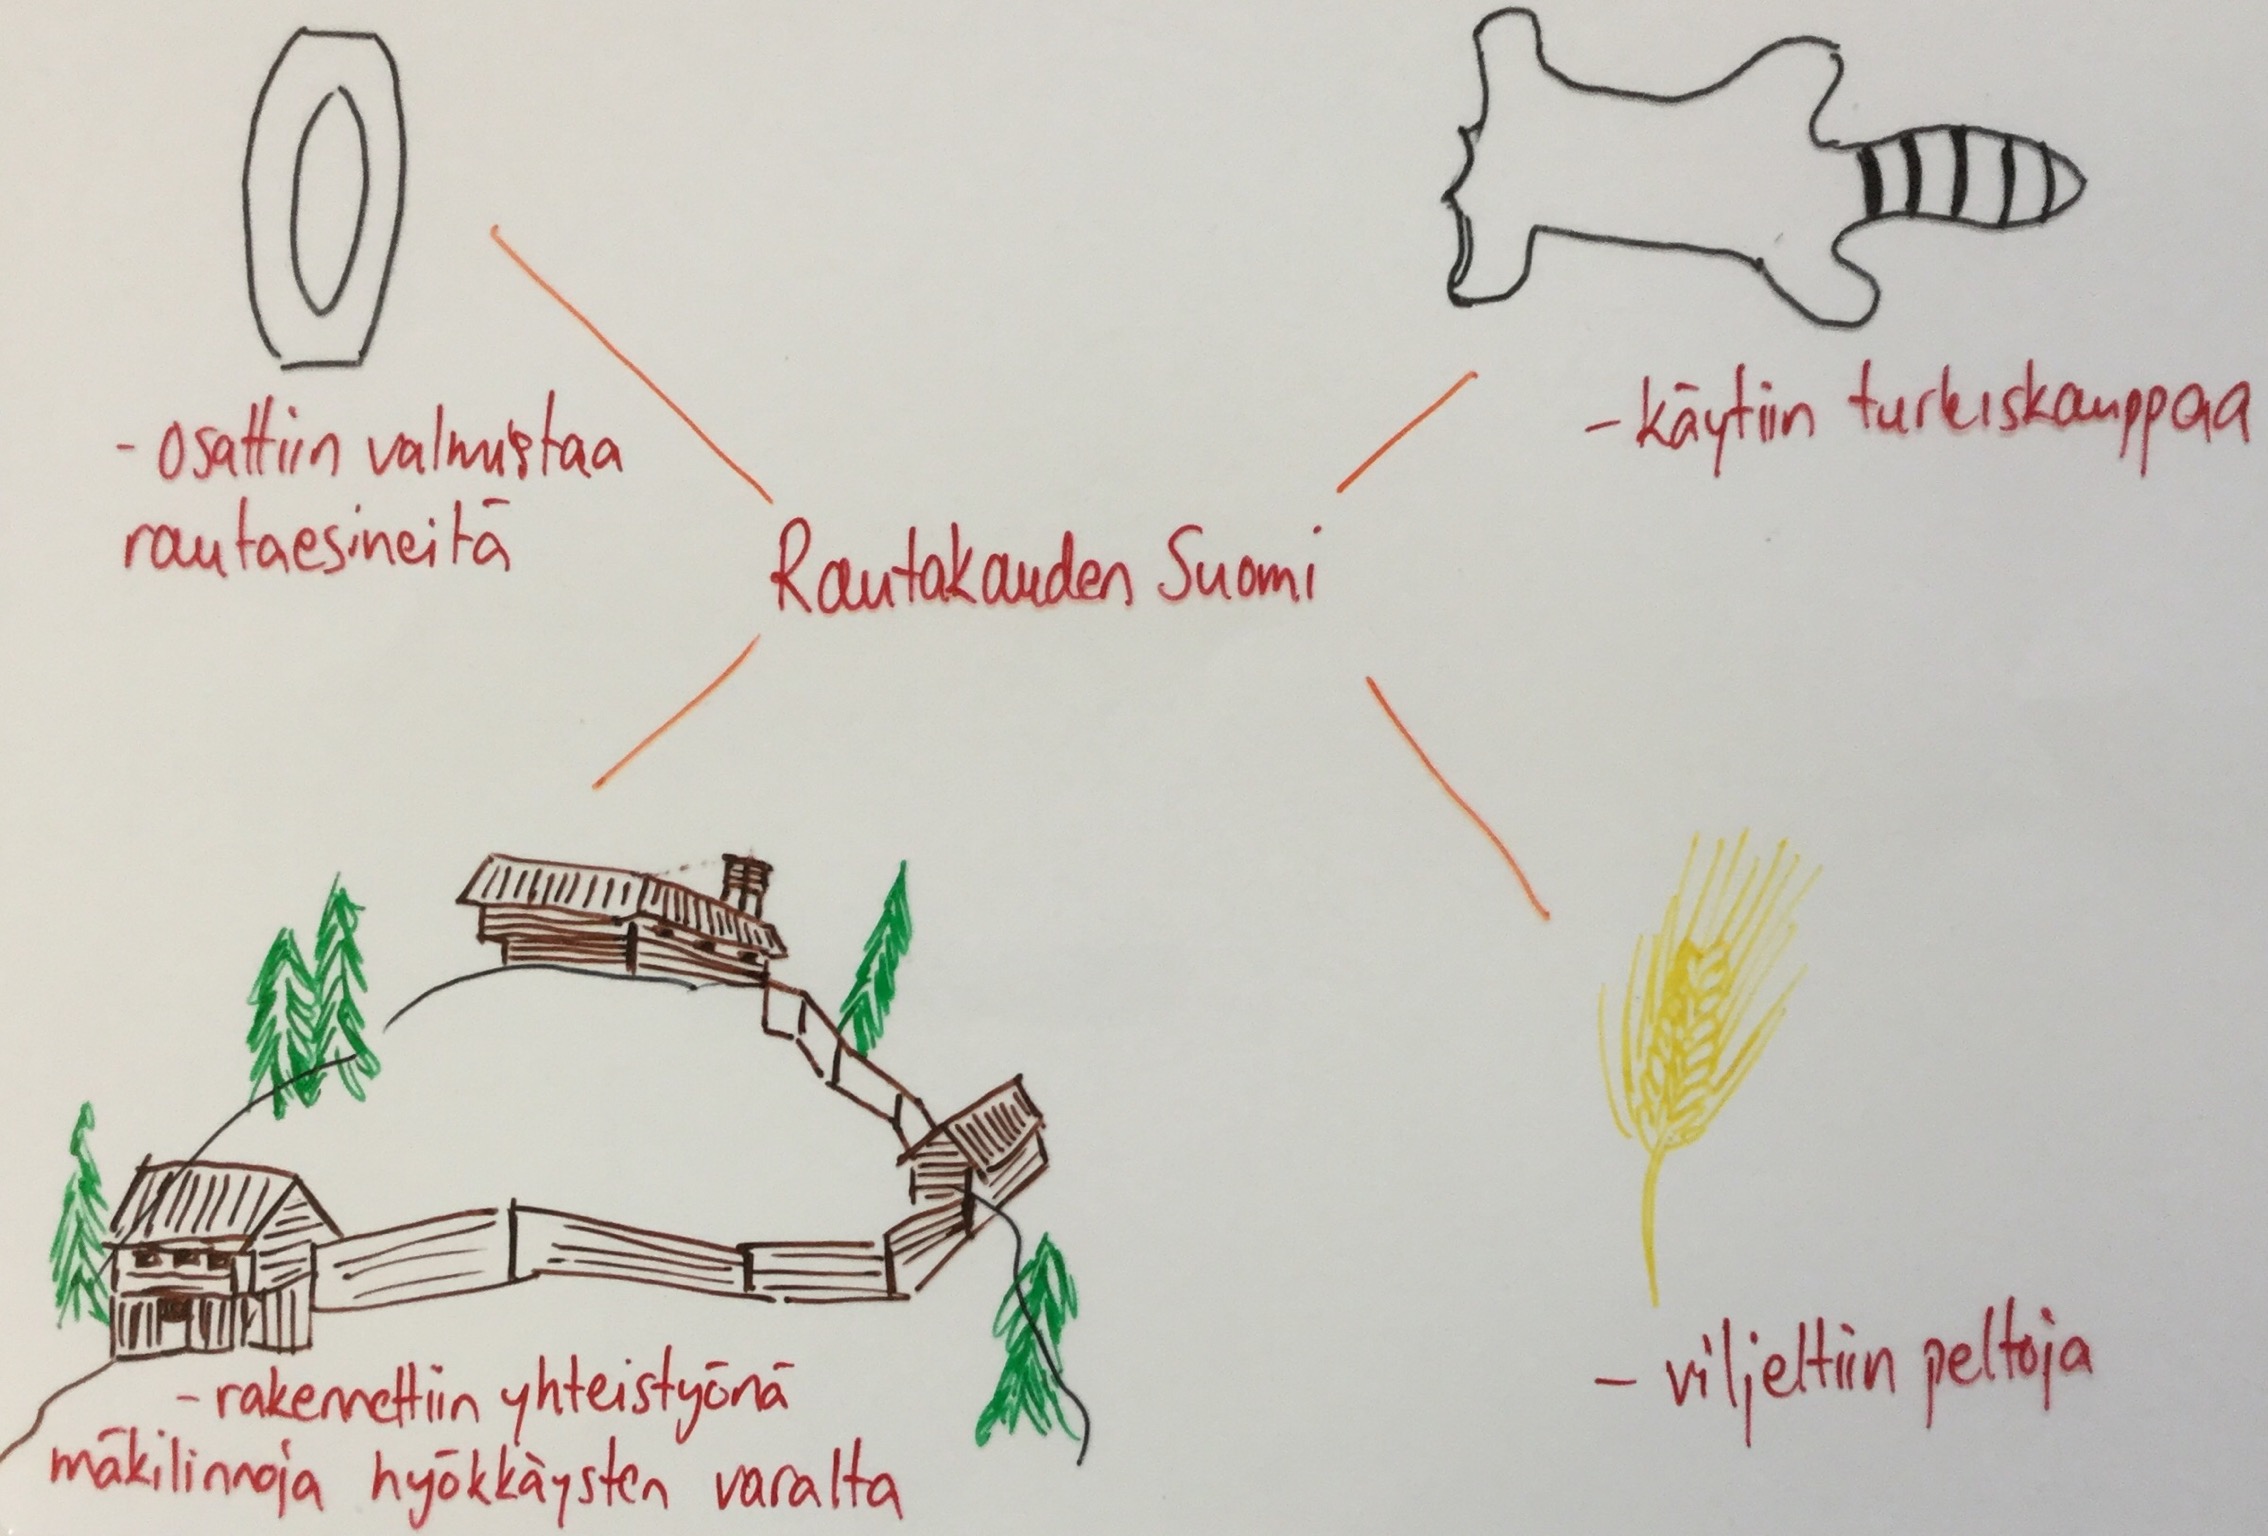 - osattiin valmistaa
rautaesineitä
- käytiin turkiskauppaa
Rautakauden Suomi
- rakennettiin yhteistyönä
mäkilinnoja hyökkäysten varalta
- viljeltiin peltoja